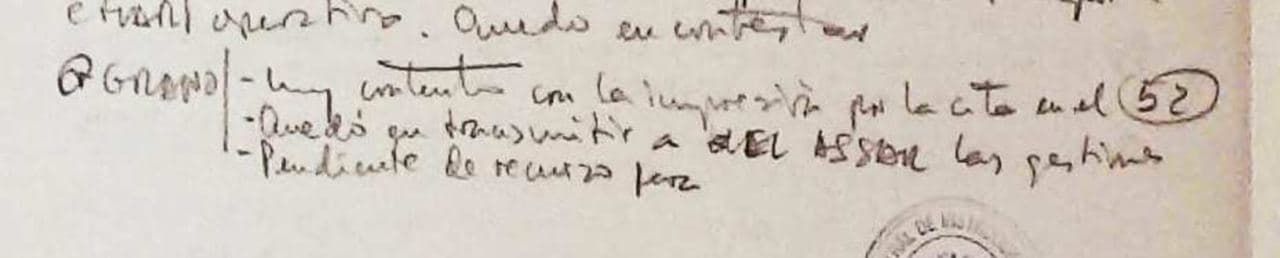 operativo. Quedó en contestar
GRANO - Muy contento con la impresión por la cita en el 52
- Quedó en transmitir a DEL ASSAR las gestiones
- Pendiente de recurso para
DE